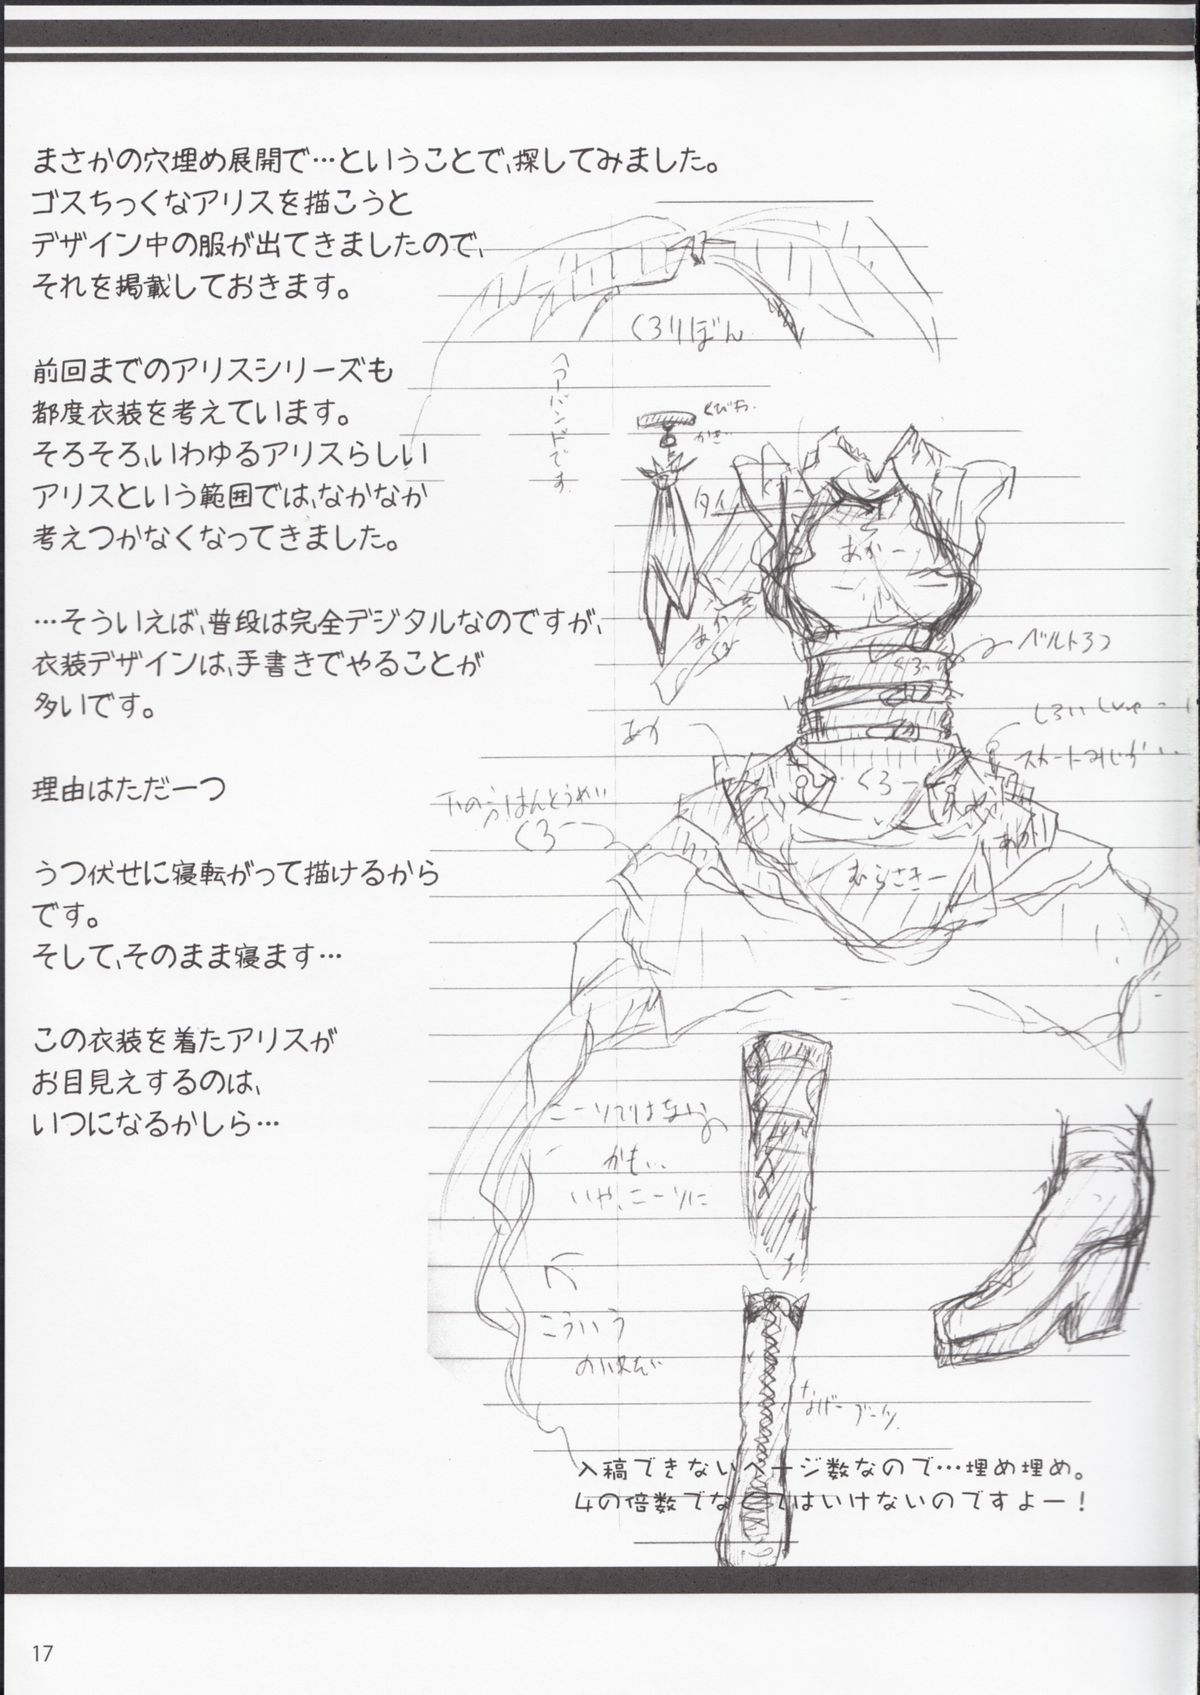 まさかの穴埋め展開で…ということで、探してみました。
ゴスちっくなアリスを描こうと
デザイン中の服が出てきましたので、
それを掲載しておきます。
前回までのアリスシリーズも
都度衣装を考えています。
そろそろ、いわゆるアリスらしい
アリスという範囲では、なかなか
考えつかなくなってきました。
…そういえば、普段は完全デジタルなのですが、
衣装デザインは、手書きでやることが
多いです。
理由はただ一つ
うつ伏せに寝転がって描けるから
です。
そして、そのまま寝ます…
この衣装を着たアリスが
お目見えするのは、
いつになるかしら…
くろりぼん
ヘアーバンドです
くびわ
かぎ
タイ
あかー
あか
くろ
ベルト3つ
くろー
あか
スカートみじかい
くろー
下のうはんとうめい
くろー
むらさきー
ニーソではないの
かも、、
いや、ニーソに
こういう
ながーブーツ
入稿できないページ数なので…埋め埋め。
4の倍数でなくてはいけないのですよー！
17